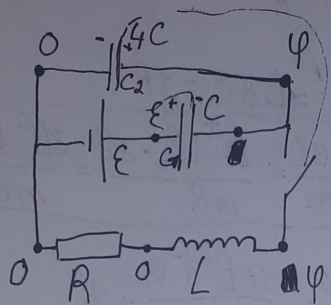 0 - + 4C φ
C₂
ε ε + - C
C₁
0 R 0 L φ